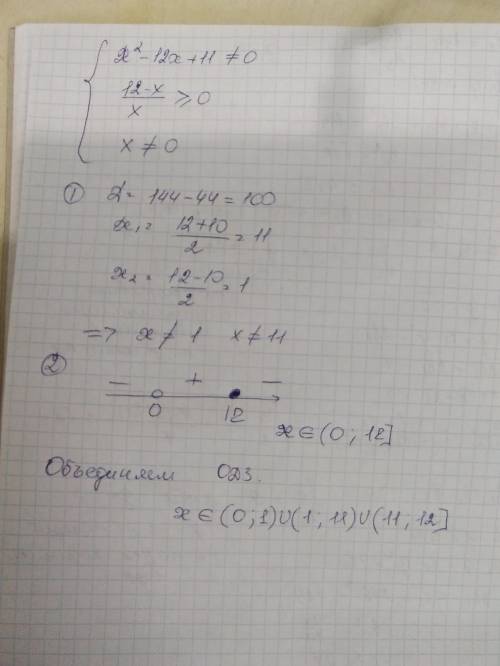 x² - 12x + 11 ≠ 0
12-x / x ≥ 0
x ≠ 0
① D = 144 - 44 = 100
x₁ = 12+10 / 2 = 11
x₂ = 12-10 / 2 = 1
=> x ≠ 1 x ≠ 11
②
− + −
0 12
x ∈ (0; 12]
Объединяем ОДЗ.
x ∈ (0; 1) ∪ (1; 11) ∪ (11; 12]